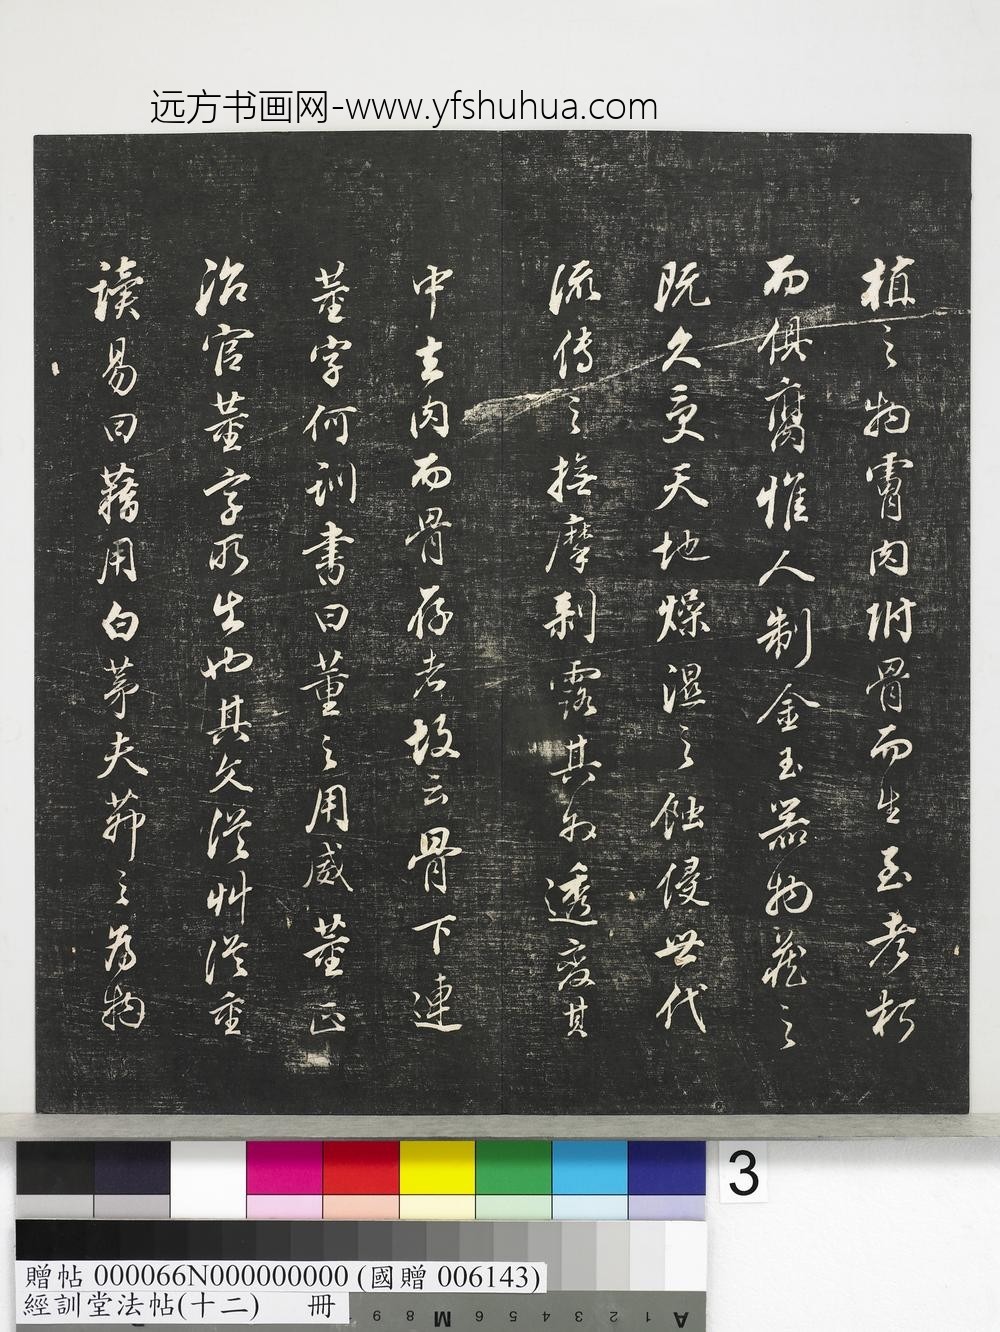 远方书画网-www.yfshuhua.com
植之物膚肉附骨而生至老朽
而俱腐惟人制金玉器物藏之
既久受天地燥濕之蝕侵世代
流傳之撫摩剝露其外透度其
中去肉而骨存者故云骨下連
董字何訓書曰董之用威董正
治官董字所生也其文從艸從重
讀易曰藉用白茅夫茅之為物
3
贈帖 000066N000000000 (國贈 006143)
經訓堂法帖(十二) 冊
A 1 2 3 4 5 6 M 8 9